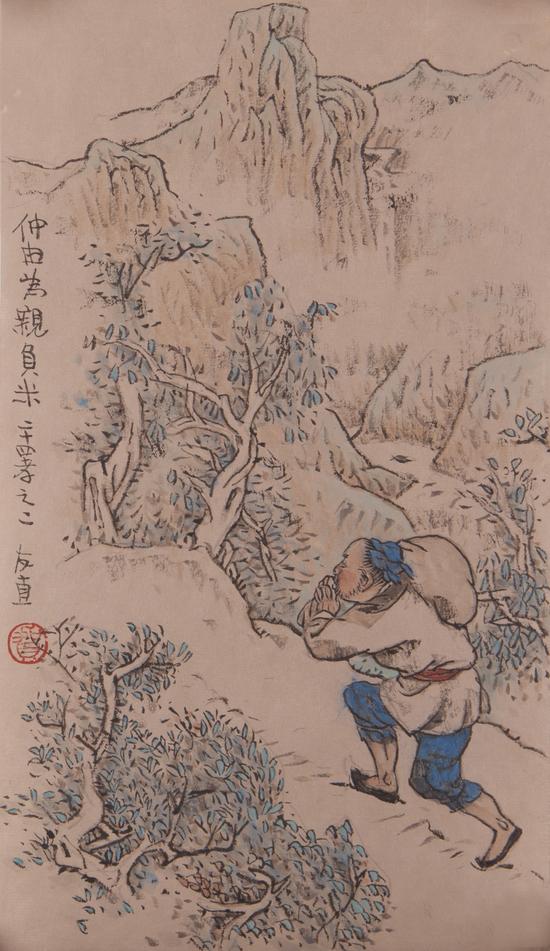 仲由为親負米 二十四孝之二 友直